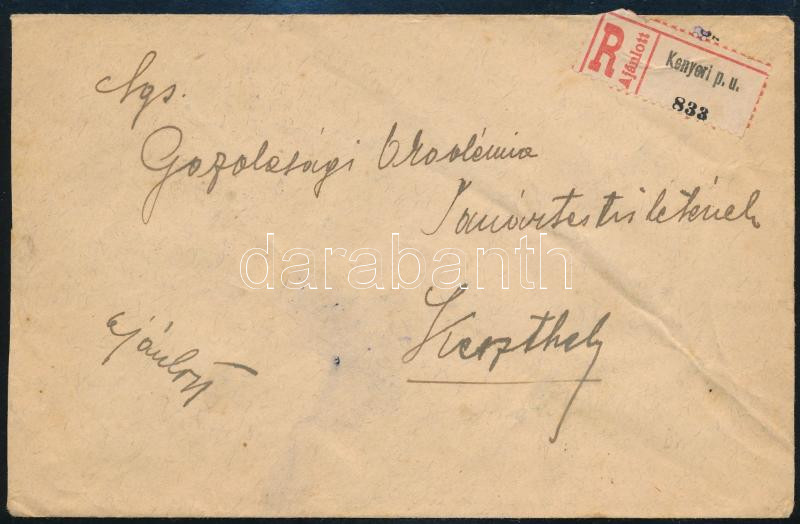 R
Ajánlott
Kenyeri p. u.
833
Ngs.
Gazdasági Akadémia
Tanártestületének
Keszthely
ajánlott
darabanth